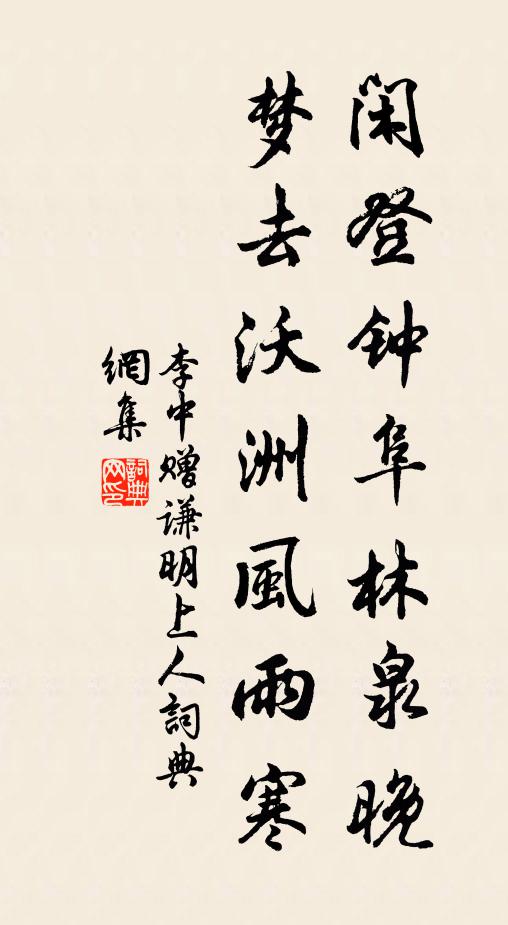 闲登钟阜林泉晚
梦去沃洲風雨寒
李中赠谦明上人詞典
網集
詞典
网印